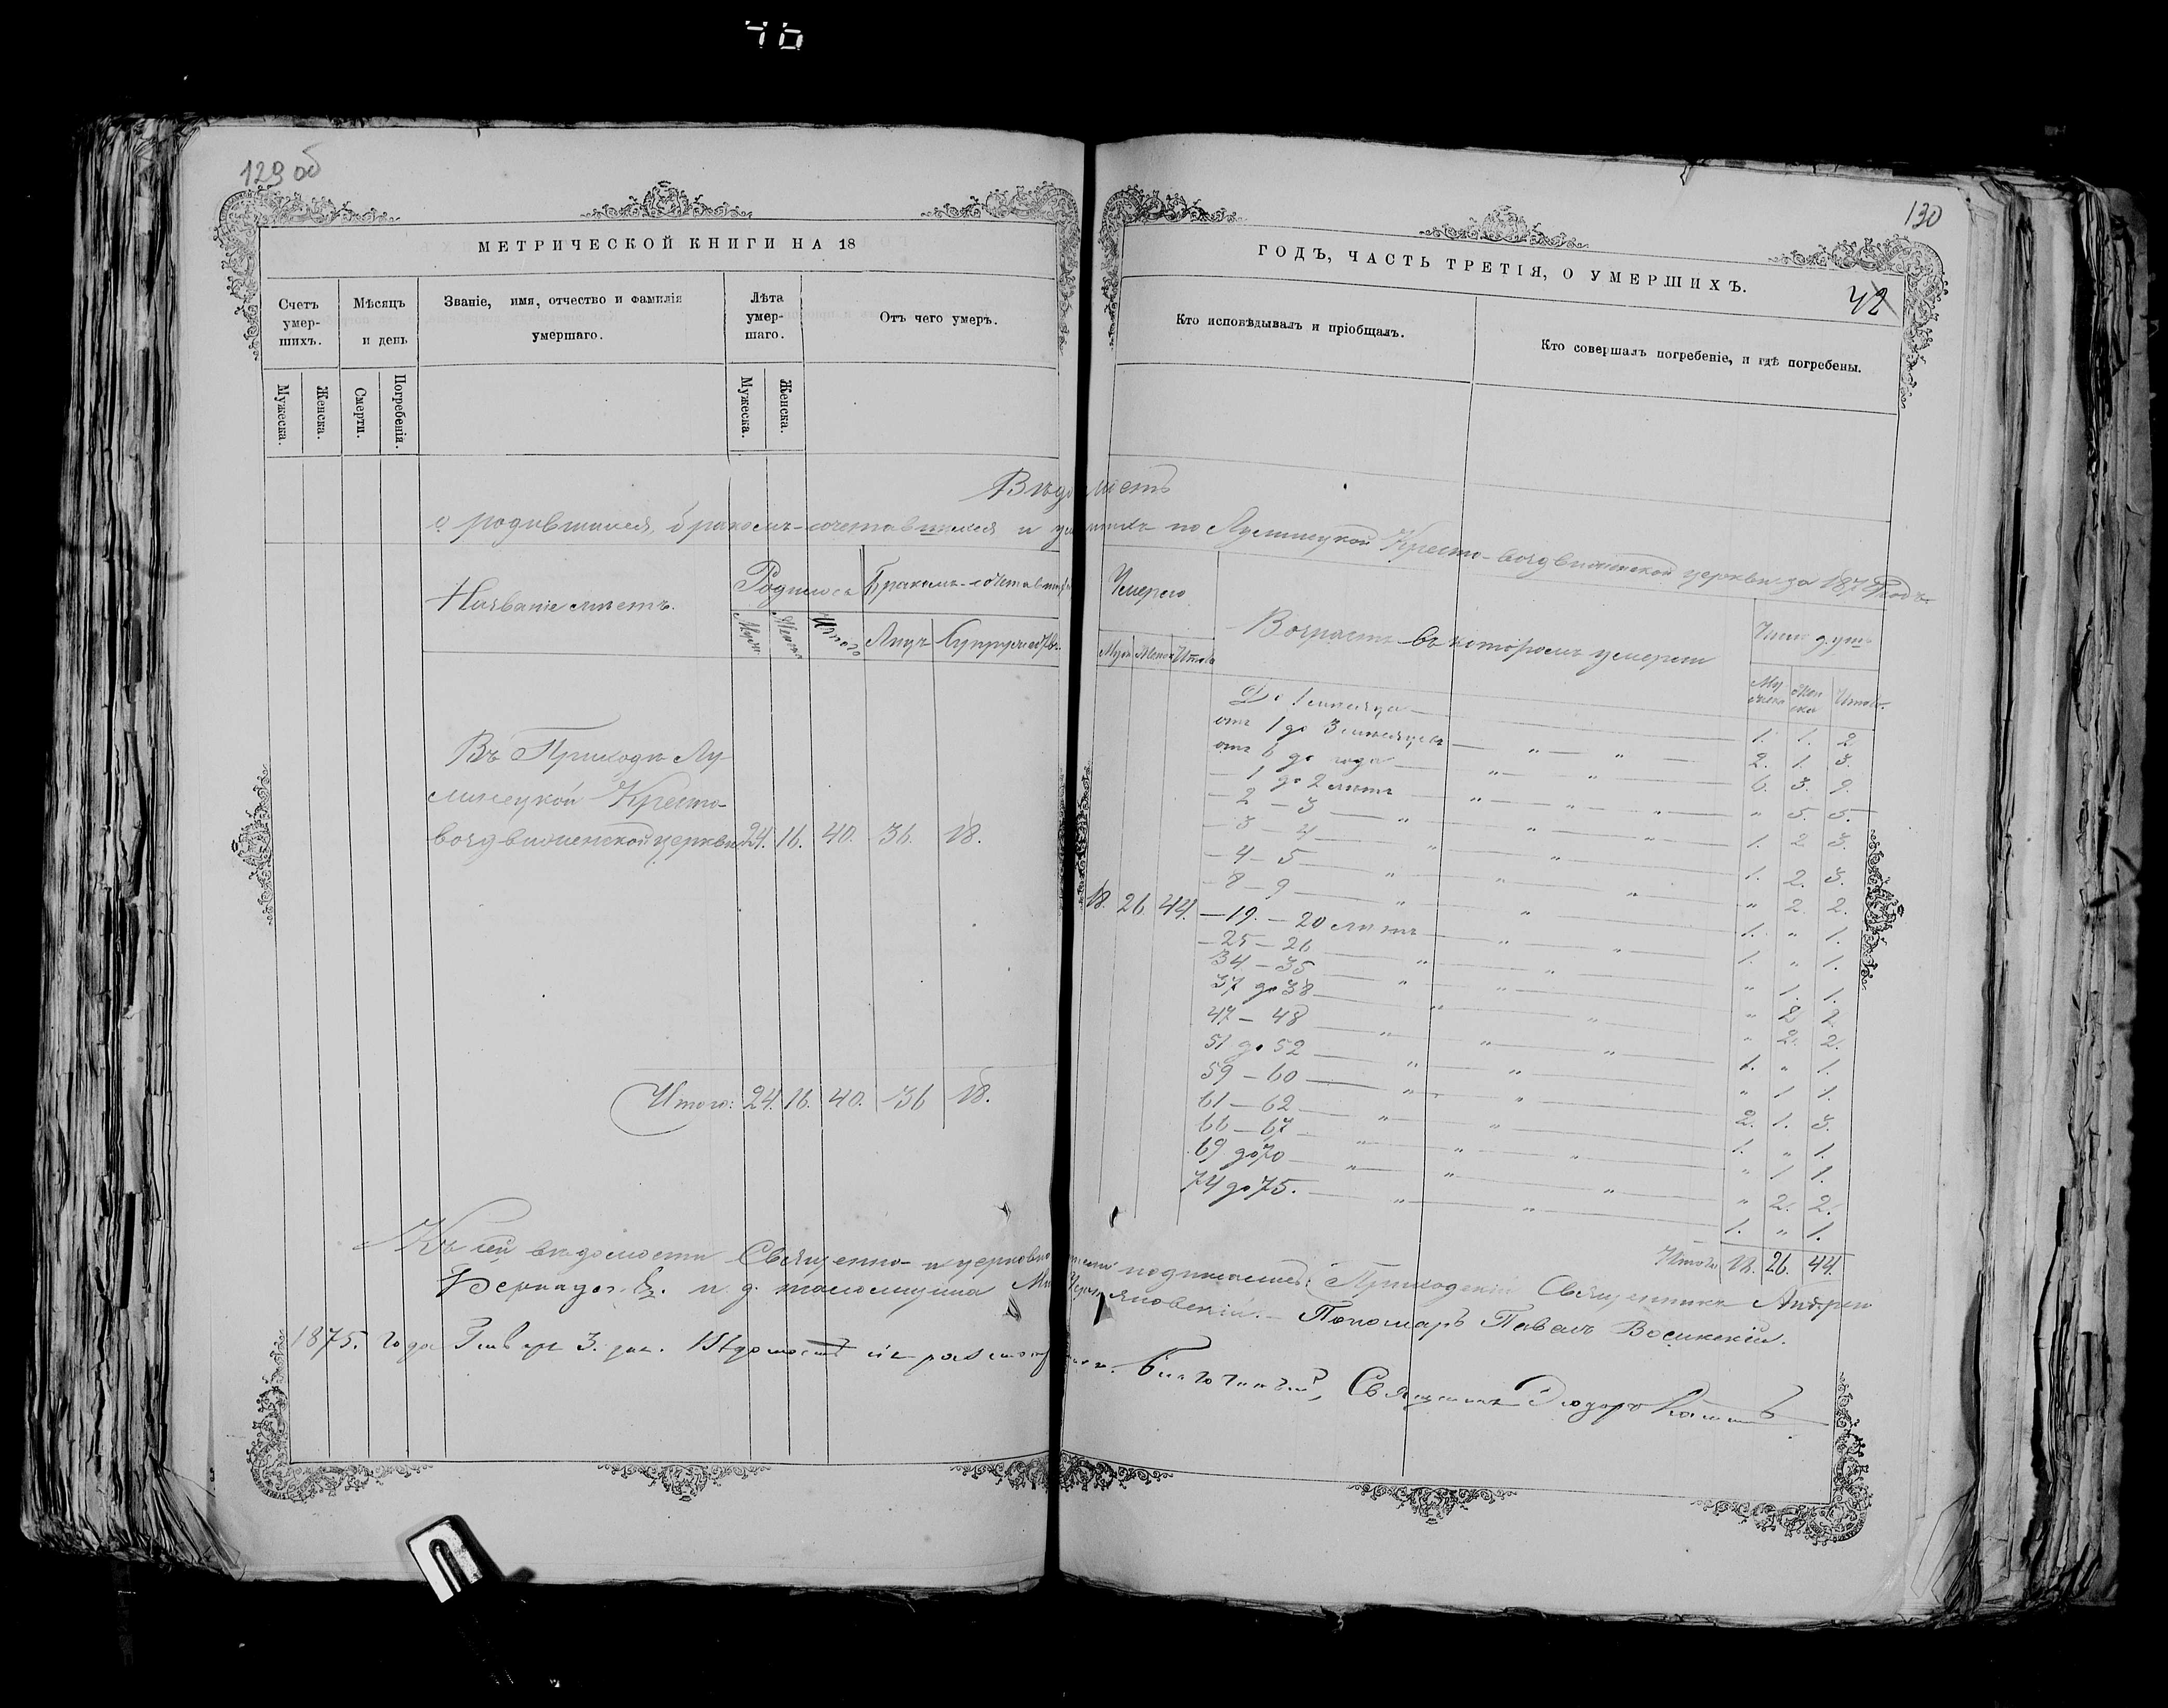 129 об
130
МЕТРИЧЕСКОЙ КНИГИ НА 18
ГОДЪ, ЧАСТЬ ТРЕТІЯ, О УМЕРШИХЪ.
42
Счетъ умер-шихъ.
Мѣсяцъ и день
Званіе, имя, отчество и фамилія умершаго.
Лѣта умер-шаго.
Отъ чего умеръ.
Кто исповѣдывалъ и пріобщалъ.
Кто совершалъ погребеніе, и гдѣ погребены.
Мужеска.
Женска.
Смерти.
Погребенія.
Мужеска.
Женска.
Вѣдомость
о родившихся, бракомъ-сочетавшихся и умершихъ по Кресто-воздвиженской церкви за 187 годъ
Названіе мѣстъ.
Родилось
Бракомъ-сочетавш
Лицъ
Супружествъ
Итого
Умерло
Муж Женск Итого
Возрастъ въ которомъ умерли
Число душъ
Му жеска
Жен ска
Итого.
Въ Приходѣ Лу-
Кресто-
воздвиженской церкви 24. 16. 40. 36. 18.
18. 26. 44.
До 1 мѣсяца 1. 1. 2
отъ 1 до 3 мѣсяцевъ 2. 1. 3.
отъ 6 до года 6. 3. 9.
— 1 до 2 лѣтъ " 5. 5.
— 2 — 3 1. 2 3.
— 3 — 4 1. 2. 3.
— 4 — 5 " 2. 2.
— 8 — 9 1. " 1.
— 19. — 20 лѣтъ 1. " 1.
— 25 — 26 " 1. 1.
34 — 35
37 до 38 " 2. 2.
47 — 48 1. " 1.
51 до 52 " 1 1.
59 — 60 2. 1. 3.
61 — 62 1. " 1.
66 — 67 " 1 1.
69 до 70 " 2. 2.
74 до 75. 1. " 1.
Итого: 24. 16. 40. 36 18.
Итого 18. 26. 44.
Къ сей вѣдомости Священно- и церковно подписались: Приходскій Священникъ Андрей
и. д. псаломщика Пономарь Павелъ
1875. года Январ 3. дня. Вѣдомость Благочинный, Священникъ Ѳеодоръ